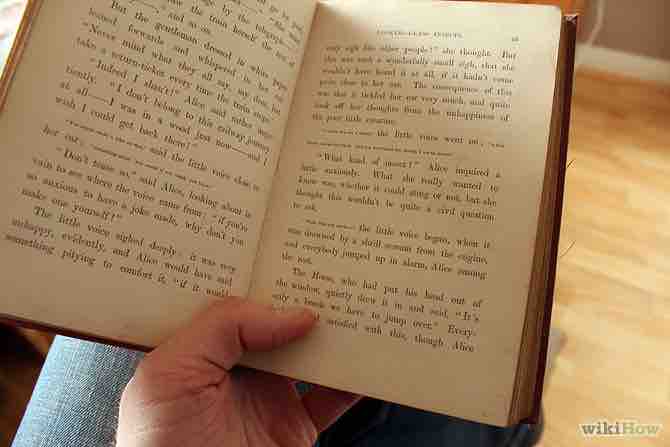 the train herself
But the gentleman dressed in white paper
leaned forwards and whispered in her
"Never mind what they all say, my dear, but
take a return-ticket every time the train stops."
"Indeed I shan't!" Alice said rather
tiently. "I don't belong to this railway journey
at all—I was in a wood just now—and I
wish I could get back there!"
said the little voice close to
her ear:
"Don't tease so," said Alice, looking about in
vain to see where the voice came from; "if you're
so anxious to have a joke made, why don't you
make one yourself?"
The little voice sighed deeply: it was very
unhappy, evidently, and Alice would have said
something pitying to comfort it, "if it would
LOOKING-GLASS INSECTS.
only sigh like other people!" she thought. But
this was such a wonderfully small sigh, that she
wouldn't have heard it at all, if it hadn't come
quite close to her ear. The consequence of this
was that it tickled her ear very much, and quite
took off her thoughts from the unhappiness of
the poor little creature.
the little voice went on;
"What kind of insect?" Alice inquired a
little anxiously. What she really wanted to
know was, whether it could sting or not, but she
thought this wouldn't be quite a civil question
to ask.
the little voice began, when it
was drowned by a shrill scream from the engine,
and everybody jumped up in alarm, Alice among
the rest.
The Horse, who had put his head out of
the window, quietly drew it in and said, "It's
only a brook we have to jump over." Every-
satisfied with this, though Alice
wikiHow